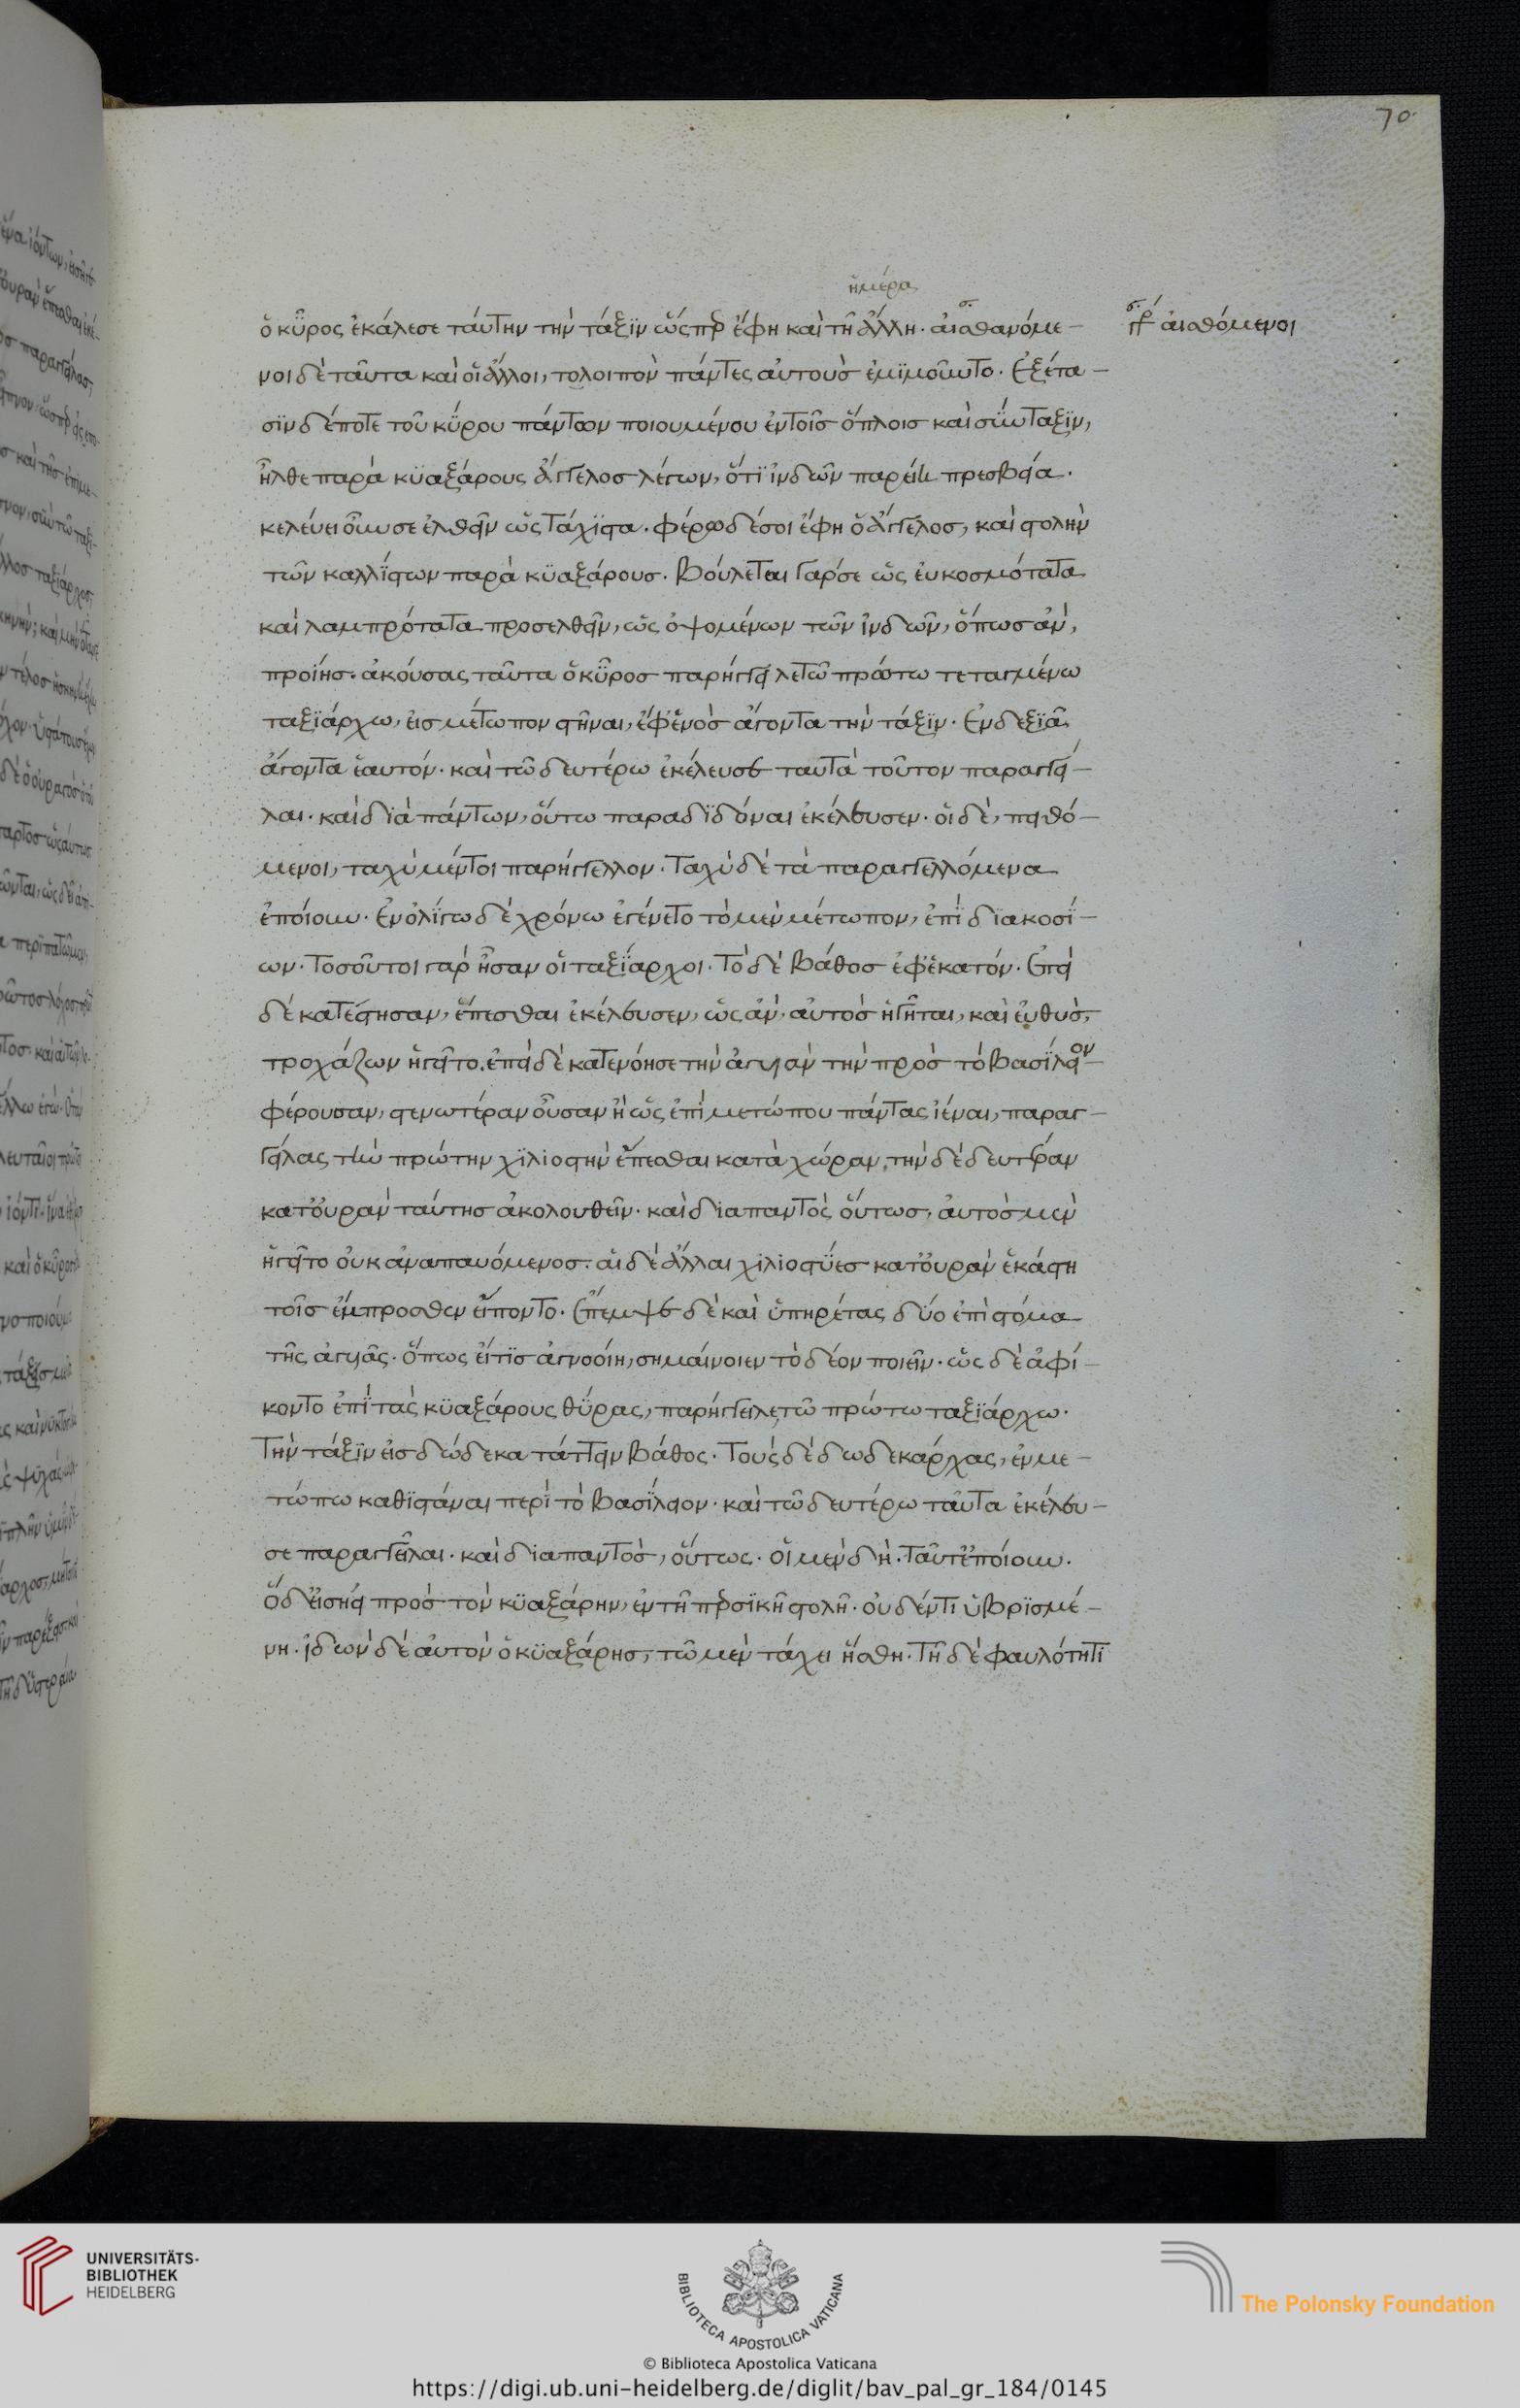 70
ἡμέρα
ὁ κῦρος ἐκάλεσε ταύτην τὴν τάξϊν ὥσπερ ἔφη καὶ τῆ ἄλλη. αἰσθανόμε-
γρ αἰσθόμενοι
νοι δὲ ταῦτα καὶ οἱ ἄλλοι, τολοιπὸν πάντες αὐτοὺς ἐμϊμοῦντο. Ἐξέτα-
σϊν δέ ποτε τοῦ κύρου πάντων ποιουμένου ἐν τοῖς ὅπλοις καὶ σύνταξϊν,
ἦλθε παρὰ κϋαξάρους ἄγγελος λέγων, ὅτϊ ἰνδῶν παρείη πρεσβεία.
κελεύει οὖν σε ἐλθεῖν ὡς τάχϊστα. φέρω δέ σοι ἔφη ὁ ἄγγελος, καὶ στολὴν
τῶν καλλίστων παρὰ κϋαξάρους. βούλεται γάρ σε ὡς εὐκοσμότατα
καὶ λαμπρότατα προσελθεῖν, ὡς ὀψομένων τῶν ἰνδῶν, ὅπως ἂν,
προίης. ἀκούσας ταῦτα ὁ κῦρος παρήγγειλε τῶ πρώτω τεταγμένω
ταξϊάρχω, εἰς μέτωπον στῆναι, ἐφ' ἑνὸς ἄγοντα τὴν τάξϊν. Ἐν δεξϊᾶ
ἄγοντα ἑαυτόν. καὶ τῶ δευτέρω ἐκέλευσε ταυτὰ τοῦτον παραγγεῖ-
λαι. καὶ δϊὰ πάντων, οὕτω παραδϊδόναι ἐκέλευσεν. οἱ δὲ, πειθό-
μενοι, ταχὺ μέντοι παρήγγελλον. Ταχὺ δὲ τὰ παραγγελλόμενα
ἐποίουν. Ἐν ὀλίγω δὲ χρόνω ἐγένετο τὸ μὲν μέτωπον, ἐπϊ δϊακοσϊ-
ων. Τοσοῦτοι γὰρ ἦσαν οἱ ταξϊαρχοι. Τὸ δὲ βάθος ἐφ' ἑκατόν. Ἐπεὶ
δὲ κατέστησαν, ἕπεσθαι ἐκέλευσεν, ὡς ἂν, αὐτὸς ἡγῆται, καὶ εὐθὺς,
τροχάζων ἡγεῖτο. ἐπεὶ δὲ κατενόησε τὴν ἀγυιὰν τὴν πρὸς τὸ βασίλειον
φέρουσαν, στενωτέραν οὖσαν ἢ ὡς ἐπὶ μετώπου πάντας ἰέναι, παραγ-
γείλας τὴν πρώτην χϊλιοστὴν ἕπεσθαι κατὰ χώραν, τὴν δὲ δευτέραν
κατ' οὐρὰν ταύτης ἀκολουθεῖν. καὶ διαπαντὸς οὕτως, αὐτὸς μὲν
ἡγεῖτο οὐκ ἀναπαυόμενος. αἱ δὲ ἄλλαι χιλιοστύες κατ' οὐρὰν ἑκάστη
τοῖς ἔμπροσθεν εἵποντο. Ἔπεμψε δὲ καὶ ὑπηρέτας δύο ἐπὶ στόμα
τῆς ἀγυιᾶς. ὅπως εἴ τϊς ἀγνοοίη, σημαίνοιεν τὸ δέον ποιεῖν. ὡς δὲ ἀφί-
κοντο ἐπὶ τὰς κϋαξάρους θύρας, παρήγγειλε τῶ πρώτω ταξϊάρχω.
Τὴν τάξϊν εἰς δώδεκα τάττειν βάθος. Τοὺς δὲ δωδεκάρχας, ἐν με-
τώπω καθϊστάναι περὶ τὸ βασίλειον. καὶ τῶ δευτέρω ταῦτα ἐκέλευ-
σε παραγγεῖλαι. καὶ διαπαντὸς, οὕτως. οἱ μὲν δὴ. ταῦτ' ἐποίουν.
ὁ δ' εἰσήει πρὸς τὸν κϋαξάρην, ἐν τῆ περσϊκῆ στολῆ. οὐδέν τι ὑβρϊσμέ-
νη. ἰδὼν δὲ αὐτὸν ὁ κϋαξάρης, τῶ μὲν τάχει ἥσθη. Τῆ δὲ φαυλότητι
UNIVERSITÄTS-
BIBLIOTHEK
HEIDELBERG
BIBLIOTECA APOSTOLICA VATICANA
The Polonsky Foundation
© Biblioteca Apostolica Vaticana
https://digi.ub.uni-heidelberg.de/diglit/bav_pal_gr_184/0145